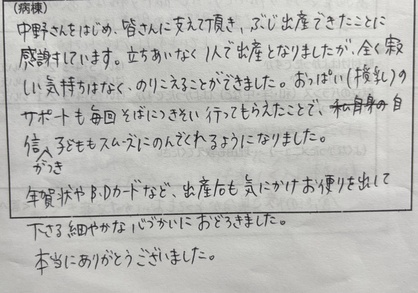 (病棟)
中野さんをはじめ、皆さんに支えて頂き、ぶじ出産できたことに
感謝しています。立ちあいなく1人で出産となりましたが、全く寂
しい気持ちはなく、のりこえることができました。おっぱい(授乳)の
サポートも毎回そばにつきそい行ってもらえたことで、私自身の自
信がつき子どももスムーズにのんでくれるようになりました。
年賀状やB.Dカードなど、出産后も気にかけお便りを出して
下さる細やかな心づかいにおどろきました。
本当にありがとうございました。